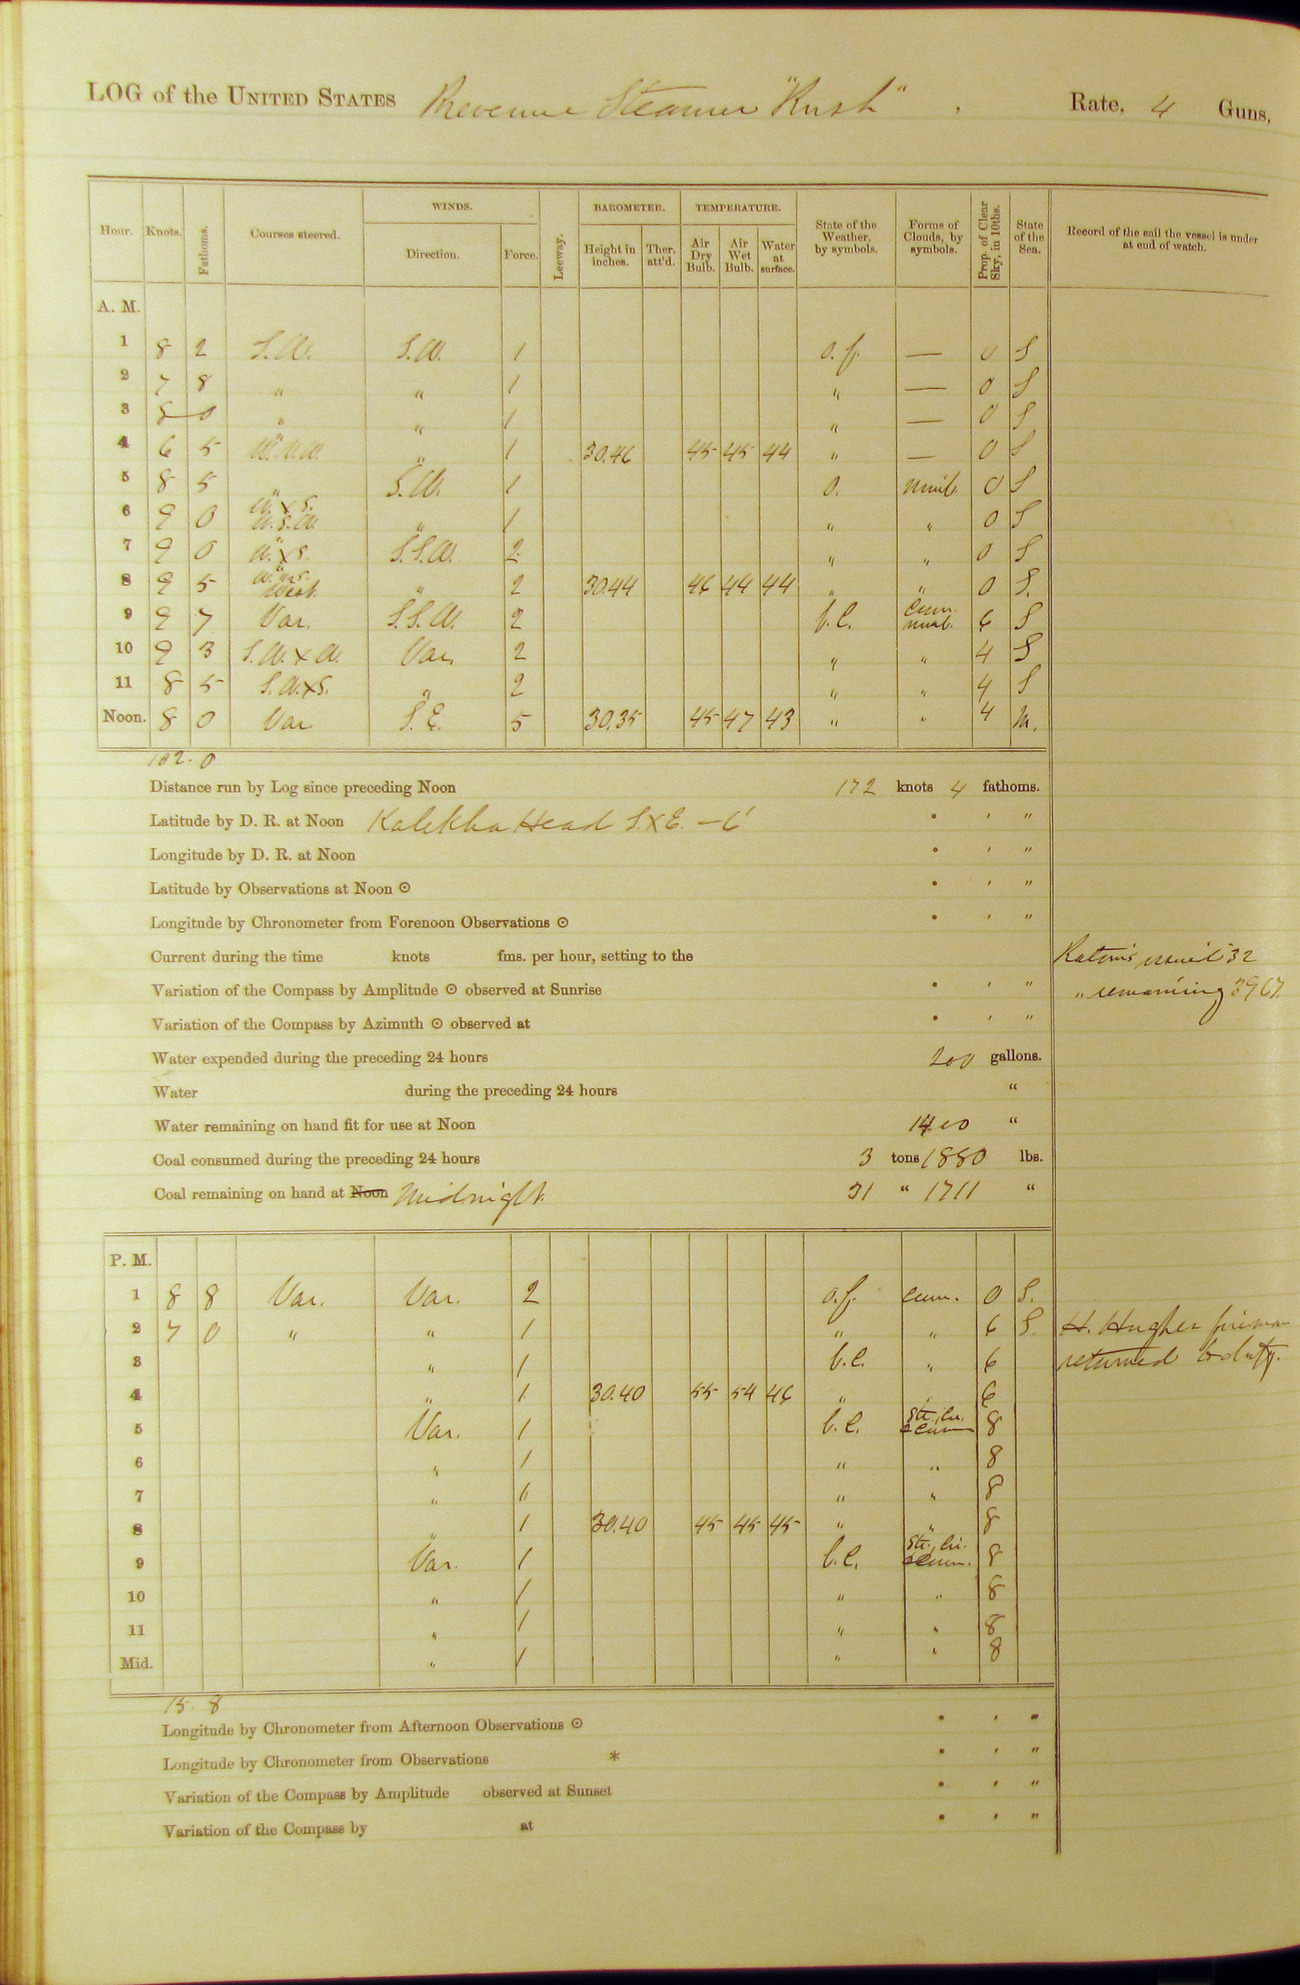 LOG of the UNITED STATES Revenue Steamer "Rush". Rate, 4 Guns,
Hour. Knots. Fathoms. Courses steered. WINDS. Direction. Force. Leeway. BAROMETER. Height in inches. Ther. att'd. TEMPERATURE. Air Dry Bulb. Air Wet Bulb. Water at surface. State of the Weather, by symbols. Forms of Clouds, by symbols. Prop. of Clear Sky, in 10ths. State of the Sea. Record of the sail the vessel is under at end of watch.
A. M.
1 8 2 S.W. S.W. 1 o.f. — 0 S
2 7 8 " " 1 " — 0 S
3 8 0 " " 1 " — 0 S
4 6 5 " 1 30.46 45 45 44 " — 0 S
5 8 5 " S.W. 1 o. nimb. 0 S
6 9 0 W. x S. W.S.W. " 1 " " 0 S
7 9 0 W. x S. S.S.W. 2 " " 0 S
8 9 5 West " 2 30.44 46 44 44 " " 0 S.
9 9 7 Var. S.S.W. 2 b.c. Cum. nimb. 6 S
10 9 3 S.W. x W. Var. 2 " " 4 S
11 8 5 S.W. x S. " 2 " " 4 S
Noon. 8 0 Var S.E. 5 30.35 45 47 43 " " 4 M.
102.0
Distance run by Log since preceding Noon 172 knots 4 fathoms.
Latitude by D. R. at Noon Kalekhta Head S.x E. — 6' ° ' "
Longitude by D. R. at Noon ° ' "
Latitude by Observations at Noon ⊙ ° ' "
Longitude by Chronometer from Forenoon Observations ⊙ ° ' "
Current during the time knots fms. per hour, setting to the Rations issued 32
Variation of the Compass by Amplitude ⊙ observed at Sunrise ° ' " " remaining 3967.
Variation of the Compass by Azimuth ⊙ observed at ° ' "
Water expended during the preceding 24 hours 200 gallons.
Water during the preceding 24 hours "
Water remaining on hand fit for use at Noon 1400 "
Coal consumed during the preceding 24 hours 3 tons 1880 lbs.
Coal remaining on hand at Noon Midnight. 31 " 1711 "
P. M.
1 8 8 Var. Var. 2 o.f. cum. 0 S.
2 7 0 " " 1 " " 6 S. H. Hughes fireman
3 " 1 b.c. " 6 returned to duty.
4 " 1 30.40 55 54 46 " " 6
5 Var. 1 b.c. Str., Cir. & Cum 8
6 " 1 " " 8
7 " 1 " " 8
8 " 1 30.40 45 45 45 " " 8
9 Var. 1 b.c. Str., Cir. & Cum. 8
10 " 1 " " 8
11 " 1 " " 8
Mid. " 1 " " 8
15. 8
Longitude by Chronometer from Afternoon Observations ⊙ ° ' "
Longitude by Chronometer from Observations * ° ' "
Variation of the Compass by Amplitude observed at Sunset ° ' "
Variation of the Compass by at ° ' "